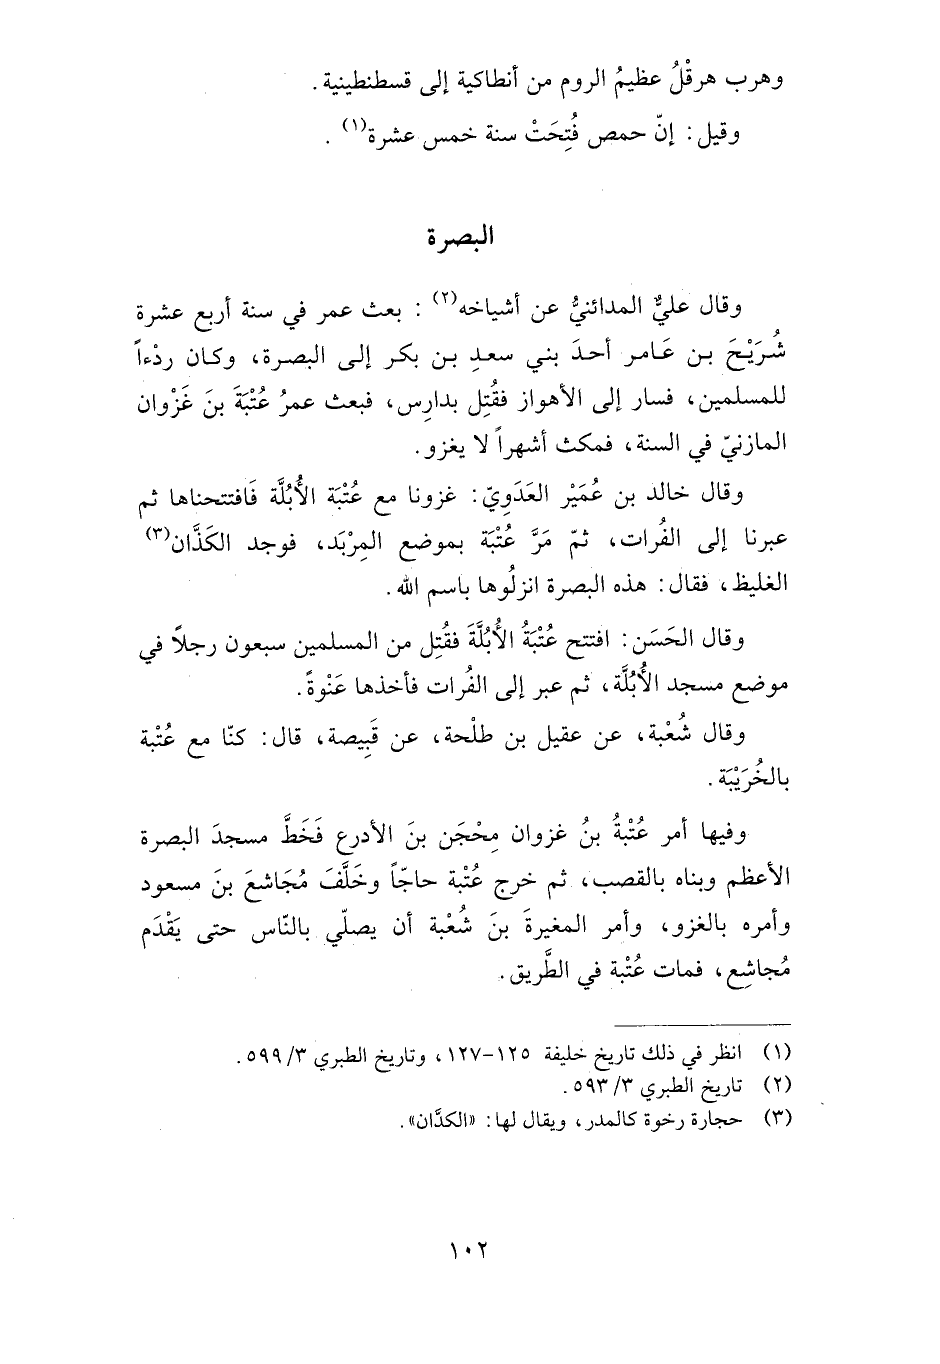 وهرب هرقْلُ عظيمُ الروم من أنطاكية إلى قسطنطينية .
وقيل : إنّ حمص فُتِحَتْ سنة خمس عشرة(١) .
البصرة
وقال عليٌّ المدائنيُّ عن أشياخه(٢) : بعث عمر في سنة أربع عشرة
شُرَيْحَ بن عَامر أحدَ بني سعدِ بن بكر إلى البصرة، وكان رِدْءاً
للمسلمين، فسار إلى الأهواز فقُتِل بدارِس، فبعث عمرُ عُتْبَةَ بنَ غَزْوان
المازنيّ في السنة، فمكث أشهراً لا يغزو.
وقال خالد بن عُمَيْر العَدَوِيّ: غزونا مع عُتْبَة الأُبُلَّة فَافتتحناها ثم
عبرنا إلى الفُرات، ثمّ مَرَّ عُتْبَة بموضع المِرْبَد، فوجد الكَذَّان(٣)
الغليظ، فقال: هذه البصرة انزلُوها باسم الله.
وقال الحَسَن: افتتح عُتْبَةُ الأُبُلَّةَ فقُتِل من المسلمين سبعون رجلاً في
موضع مسجد الأُبُلَّة، ثم عبر إلى الفُرات فأخذها عَنْوةً.
وقال شُعْبة، عن عقيل بن طلْحة، عن قَبِيصة، قال: كنّا مع عُتْبة
بالخُرَيْبَة.
وفيها أمر عُتْبةُ بنُ غزوان مِحْجَن بنَ الأدرع فَخَطَّ مسجدَ البصرة
الأعظم وبناه بالقصب، ثم خرج عُتْبة حاجّاً وخَلَّفَ مُجَاشعَ بنَ مسعود
وأمره بالغزو، وأمر المغيرةَ بنَ شُعْبة أن يصلّي بالنّاس حتى يَقْدَم
مُجاشِع، فمات عُتْبة في الطَّريق.
(١) انظر في ذلك تاريخ خليفة ١٢٥-١٢٧، وتاريخ الطبري ٣/ ٥٩٩.
(٢) تاريخ الطبري ٣/ ٥٩٣.
(٣) حجارة رخوة كالمدر، ويقال لها: «الكدَّان».
١٠٢